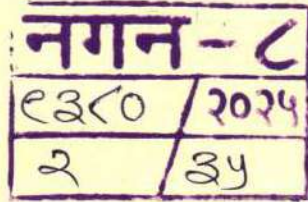 नगन - ८
९३८० / २०२५
२ / ३५